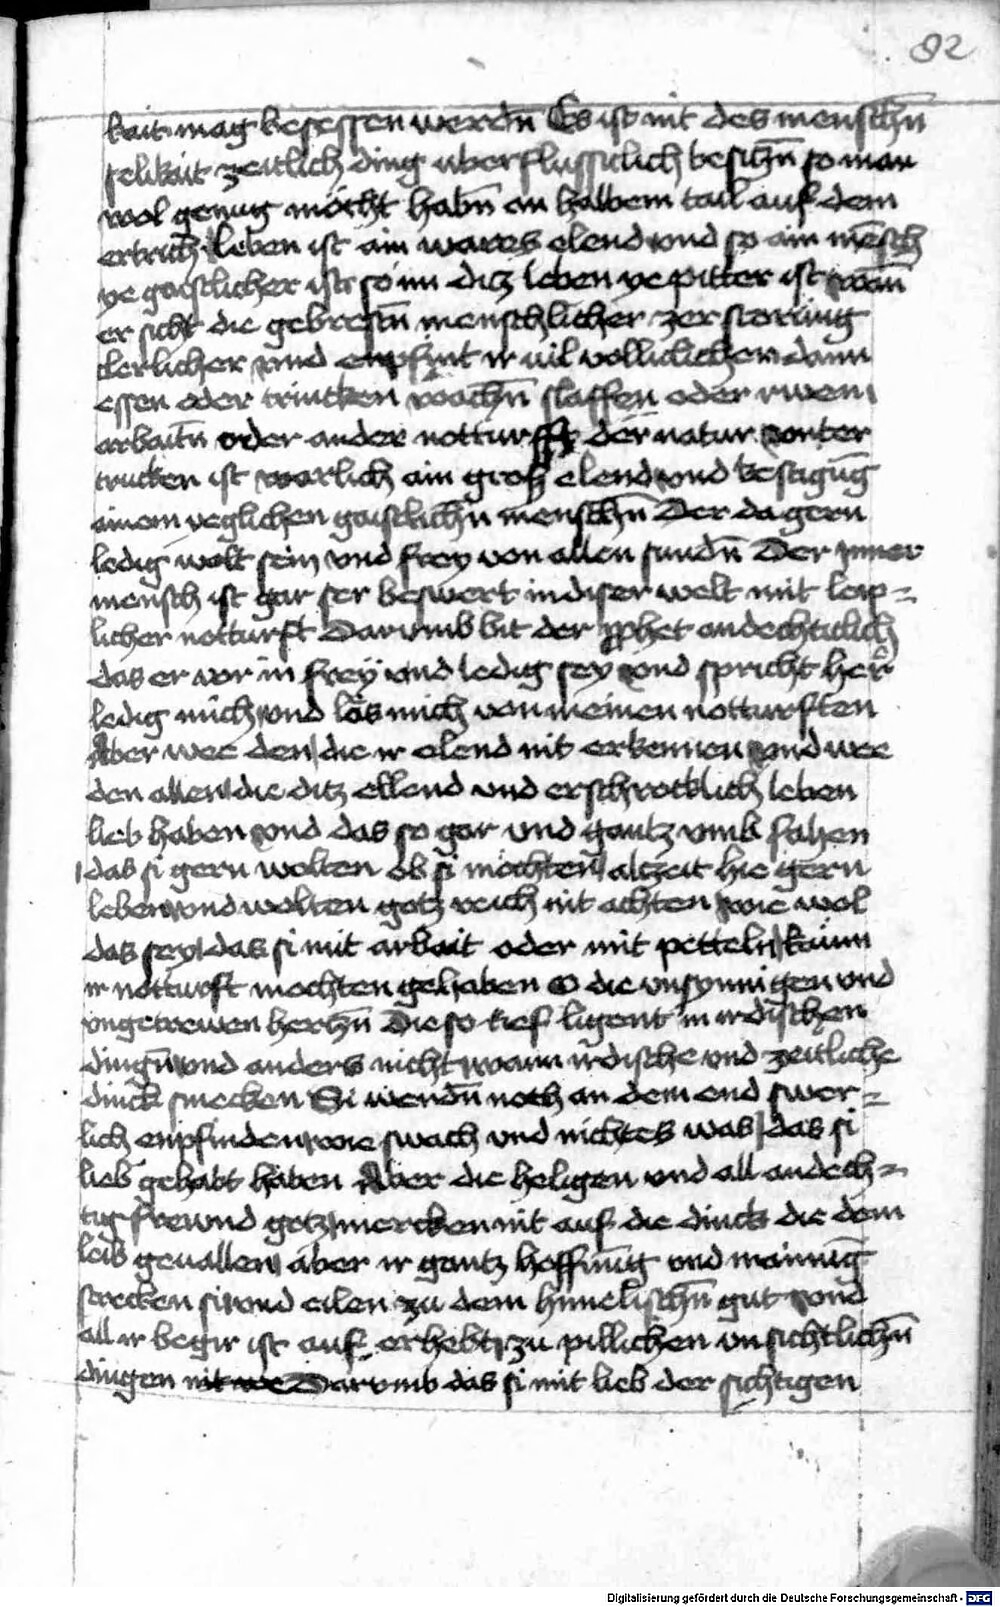 82
kait mag besessen werdn̄ Es ist nit des menschn̄
selikait zeitlich ding vberflussiclich besiczn̄ so man
wol genug mo̊cht habn̄ an halbem tail auf dem
ertrich leben ist ain wares elend vnd so ain mēsch
ye gaistlicher ist so im ditz leben ye pitter ist wan̄
er sicht die gebrestn̄ menschlicher zerstorūng
clerlicher vnd enpfint ir vil volliclicher dann
essen oder trincken wachn̄ slaffen oder rwen
arbaitn̄ oder ander notturfft der natur vnter
trucken ist warlich ain groß elend vnd kestigūg
ainem yeglichen gaistlichn̄ menschn̄ Der da gern
ledig wolt sein vnd frey von allen sundn̄ Der inner
mensch ist gar ser beswert in diser welt mit leip=
licher notturft Darvmb bit der prophet andechticlich
das er vor in frey vnd ledig sey vnd spricht her̄
ledig mich vnd lo̊s mich von meinen notturften
Aber wee den die ir elend nit erkennen vnd wee
den allen die ditz ellend vnd erschrocklich leben
lieb haben vnd das so gar vnd gantz vmb fahen
das si gern wolten ob si mochten alczeit hie gern
leben vnd wolten gotz reich nit achten wie wol
das sey das si mit arbait oder mit petteln kaum
ir notturft mochten gehaben O die vnsynnigen vnd
vngetrewen hertzn̄ Die so tief ligent in irdischen
dingn̄ vnd anders nicht wann irdische vnd zeitliche
dinck smecken Si werdn̄ noch an dem end swer=
lich enpfinden wie swach vnd nichtes was das si
lieb gehabt haben Aber die heligen vnd all andech=
tig frewnd gotz mercken nit auf die dinck die dem
leib geuallen aber ir gantz hoffnūg vnd mainūg
strecken si vnd eilen zu dem himelischn̄ gut vnd
all ir begir ist auf erhebt zu pillichen vnsichtlichn̄
dingen Darvmb das si mit lieb der sichtigen
Digitalisierung gefördert durch die Deutsche Forschungsgemeinschaft - DFG